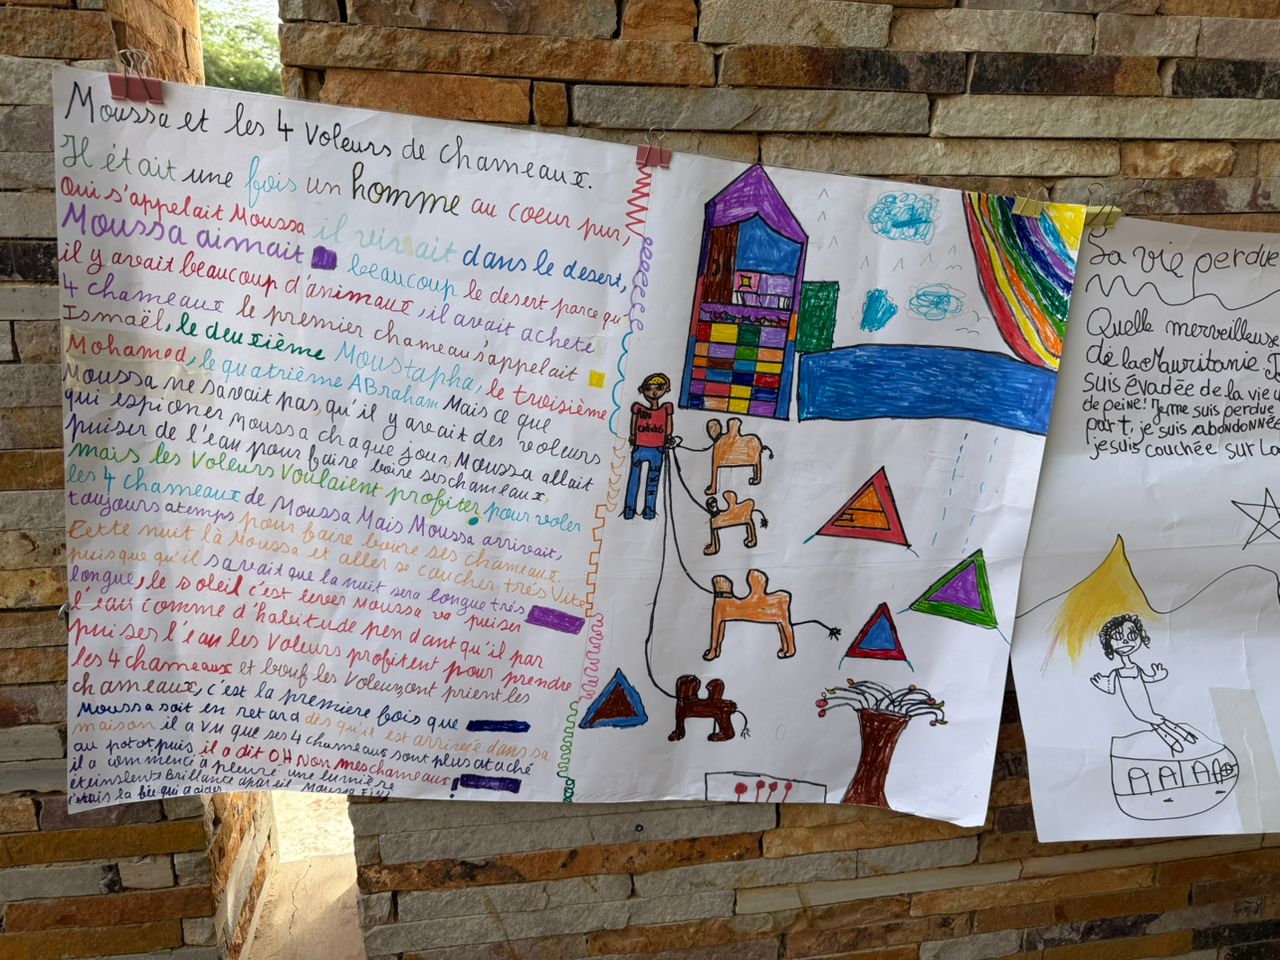 Moussa et les 4 voleurs de chameaux.
Il était une fois un homme au coeur pur,
Qui s'appelait Moussa il vivait dans le desert,
Moussa aimait beaucoup le desert parce qu'
il y avait beaucoup d'animaux, il avait acheté
4 chameaux le premier chameau s'appelait
Ismaël, le deuxième Moustapha, le troisième
Mohamed, le quatrième ABraham Mais ce que
Moussa ne savait pas, qu'il y avait des voleurs
qui espioner Moussa chaque jour, Moussa allait
puiser de l'eau pour faire boire ses chameaux,
mais les Voleurs Voulaient profiter pour voler
les 4 chameaux de Moussa Mais Moussa arrivait,
toujours atemps pour faire boire ses chameaux.
Cette nuit là Moussa et aller se coucher trés Vite
puisque qu'il savait que la nuit sera longue trés
longue, le soleil c'est lever Moussa va puiser
l'eau comme d'habitude pendant qu'il par
puiser l'eau les Voleurs profitent pour prendre
les 4 chameaux et bouf les Voleurs ont prient les
chameaux, c'est la premiere fois que
Moussa soit en retard dès qu'il est arrivée dans sa
maison il a vu que ses 4 chameaux sont plus ataché
au potot puis il a dit OH Non mes chameaux !
il a commencé a pleuré une lumière
éteinslente Brillante aparait Moussa FINI
c'étais la fée qui
adidas
La vie perdue
Quelle merveilleuse
de la Mauritanie
suis évadée de la vie
de peine! Je me suis perdue
part, je suis abandonnée
je suis couchée sur